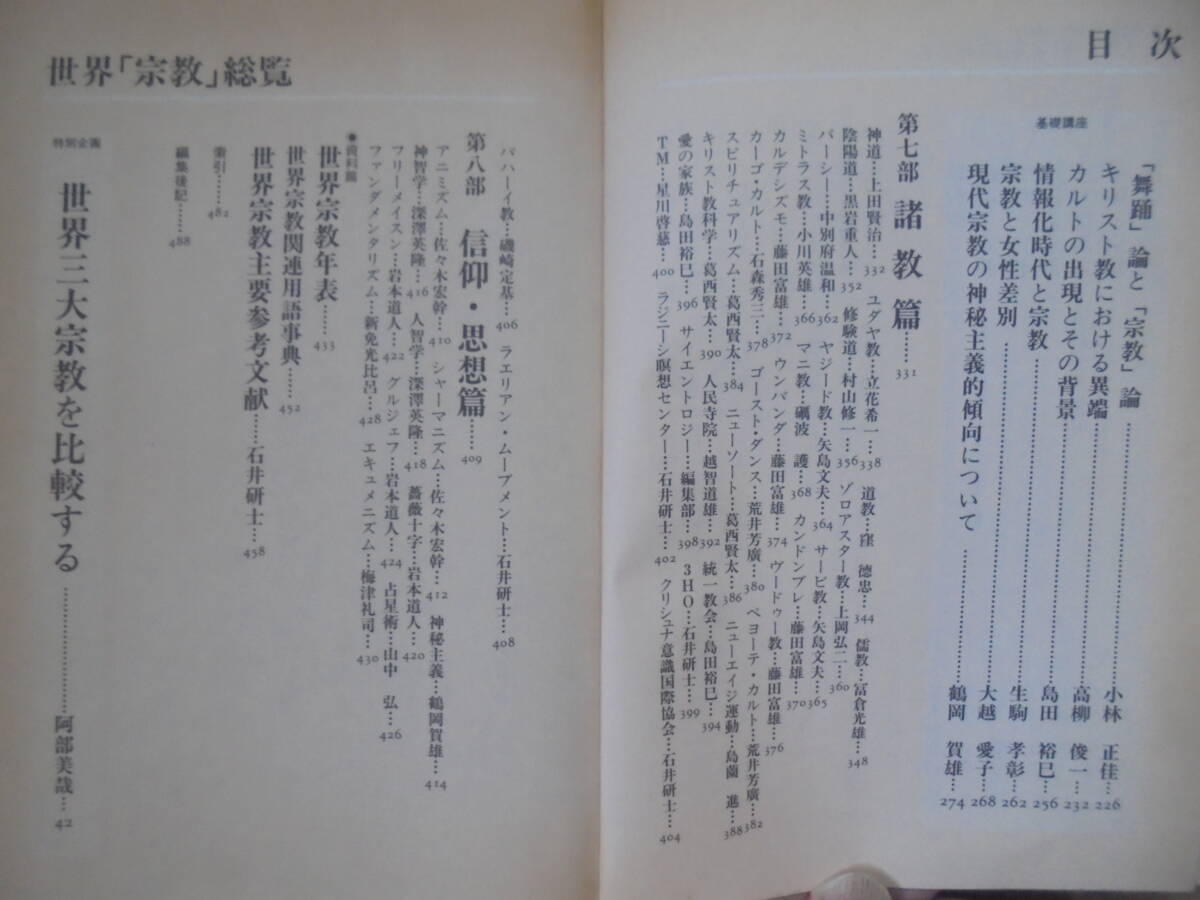 目次
基礎講座
「舞踊」論と「宗教」論……小林 正佳…226
キリスト教における異端……高柳 俊一…232
カルトの出現とその背景……島田 裕巳…256
情報化時代と宗教……生駒 孝彰…262
宗教と女性差別……大越 愛子…268
現代宗教の神秘主義的傾向について……鶴岡 賀雄…274
第七部 諸教篇……331
神道…上田賢治…332 ユダヤ教…立花希一…338 道教…窪 德忠…344 儒教…冨倉光雄…348
陰陽道…黒岩重人…352 修験道…村山修一…356 ゾロアスター教…上岡弘二…360
パーシー…中別府温和…362 ヤジード教…矢島文夫…364 サービ教…矢島文夫…365
ミトラス教…小川英雄…366 マニ教…礪波 護…368 カンドンブレ…藤田富雄…370
カルデシズモ…藤田富雄…372 ウンバンダ…藤田富雄…374 ヴードゥー教…藤田富雄…376
カーゴ・カルト…石森秀三…378 ゴースト・ダンス…荒井芳廣…380 ペヨーテ・カルト…荒井芳廣…382
スピリチュアリズム…葛西賢太…384 ニューソート…葛西賢太…386 ニューエイジ運動…島薗 進…388
キリスト教科学…葛西賢太…390 人民寺院…越智道雄…392 統一教会…島田裕巳…394
愛の家族…島田裕巳…396 サイエントロジー…編集部…398 3HO…石井研士…399
TM…星川啓慈…400 ラジニーシ瞑想センター…石井研士…402 クリシュナ意識国際協会…石井研士…404
世界「宗教」総覧
バハーイ教…磯崎定基…406 ラエリアン・ムーブメント…石井研士…408
第八部 信仰・思想篇……409
アニミズム…佐々木宏幹…410 シャーマニズム…佐々木宏幹…412 神秘主義…鶴岡賀雄…414
神智学…深澤英隆…416 人智学…深澤英隆…418 薔薇十字…岩本道人…420
フリーメイスン…岩本道人…422 グルジェフ…岩本道人…424 占星術…山中 弘…426
ファンダメンタリズム…新免光比呂…428 エキュメニズム…梅津礼司…430
●資料篇
世界宗教年表……433
世界宗教関連用語事典……452
世界宗教主要参考文献……石井研士…458
索引……482
編集後記……488
特別企画
世界三大宗教を比較する……阿部美哉…42